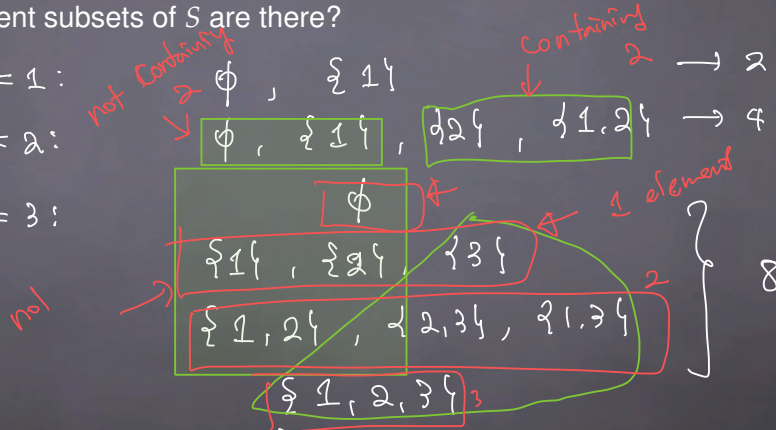 ent subsets of S are there?
not containing 2
containing 2
= 1: ϕ , {1} → 2
= 2: ϕ, {1}, {2}, {1,2} → 4
ϕ
1 element
= 3: {1}, {2}, {3}
2
8
not
{1,2}, {2,3}, {1,3}
{1,2,3} 3